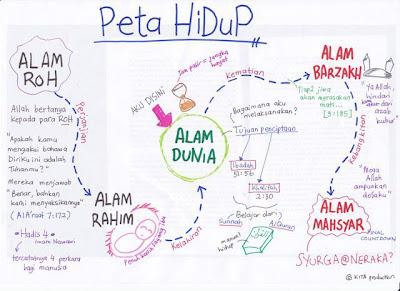 Peta HiDuP
ALAM
ROH
Perjanjian
Allah bertanya
kepada para ROH
"Apakah kamu
mengakui bahawa
Diriku ini adalah
Tuhanmu?"
Mereka menjawab
"Benar, bahkan
kami menyaksikannya"
(Al A'raf 7:172)
• Hadis 4
Imam Nawawi
tercatatnya 4 perkara
bagi manusia
ALAM
RAHIM
Penuh kasih sayang ibu
Kelahiran
AKU DISINI
Jam pasir = jangka
hayat
ALAM
DUNIA
Bagaimana aku
melaksanakan?
Tujuan penciptaan
Ibadah
51:56
Khalifah
2:30
Belajar dari:
Sunnah
Al Quran
manual
hidup
Kematian
ALAM
BARZAKH
"Tiap2 jiwa
akan merasakan
mati...
[3:185]
"Ya Allah,
hindari
azab
kubur
Kebangkitan
"Moga
Allah
ampunkan
dosaku"
ALAM
MAHSYAR
FINAL
COUNTDOWN
SYURGA@NERAKA?
© KITA production